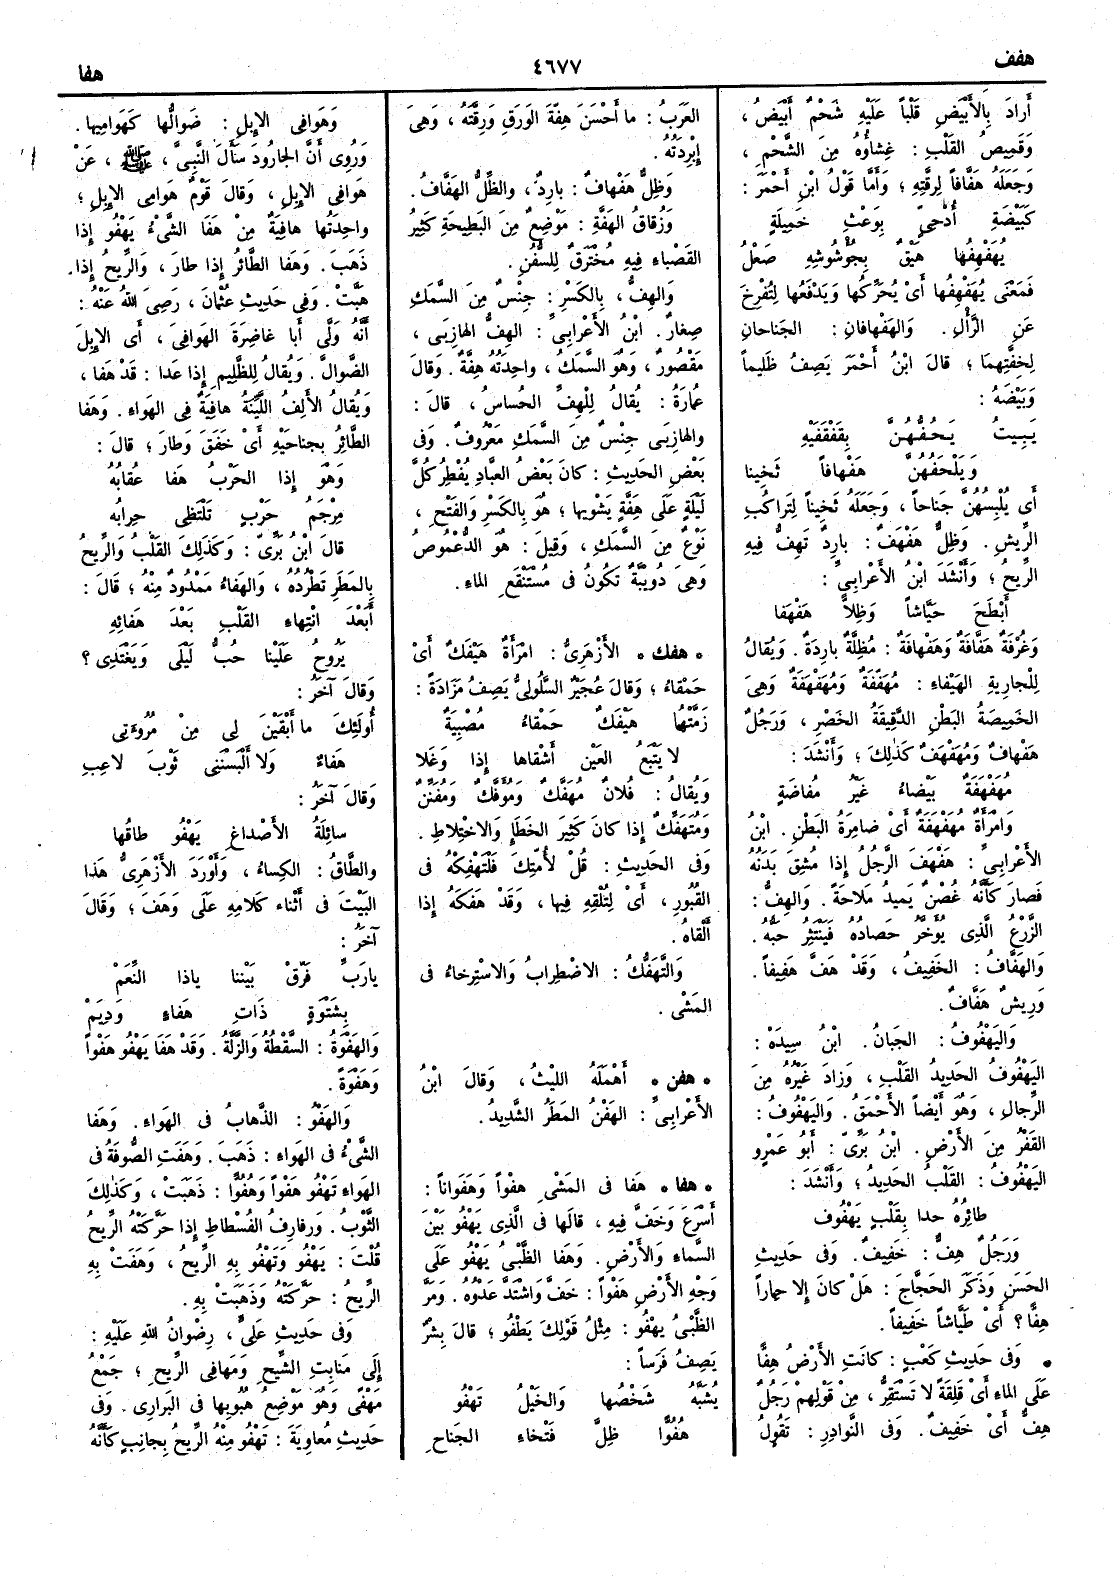 هفف
٤٦٧٧
هفا
أَرادَ بِالأَبْيَضِ قَلْباً عَلَيْهِ شَحْمٌ أَبْيَضُ ،
وَقَمِيصُ القَلْبِ : غِشاوُهُ مِنَ الشَّحْمِ ،
وَجَعَلَهُ هَفَّافاً لِرِقَّتِهِ ؛ وَأَمَّا قَوْلُ ابْنِ أَحْمَرَ :
كَبَيْضَةِ أُدْحِىٍّ بِوَعْثِ خَمِيلَةٍ
يُهَفْهِفُها هَيْقٌ بِجُؤْشُوشِهِ صَعْلُ
فَمَعْنَى يُهَفْهِفُها أَىْ يُحَرِّكُها وَيَدْفَعُها لِتُفْرِخَ
عَنِ الرَّأْلِ . وَالهَفْهافانِ : الجَناحانِ
لِخِفَّتِهِما ؛ قالَ ابْنُ أَحْمَرَ يَصِفُ ظَلِيماً
وَبَيْضَهُ :
يَبِيتُ يَحُفُّهُنَّ بِقَفْقَفَيْهِ
وَيَلْحَفُهُنَّ هَفْهافاً ثَخِينا
أَىْ يُلْبِسُهُنَّ جَناحاً ، وَجَعَلَهُ ثَخِيناً لِتَراكُبِ
الرِّيشِ . وَظِلٌّ هَفْهَفٌ : بارِدٌ تَهِفُّ فِيهِ
الرِّيحُ ؛ وَأَنْشَدَ ابْنُ الأَعْرابِىِّ :
أَبْطَحَ حَيَّاشاً وَظِلاًّ هَفْهَفا
وَغُرْفَةٌ هَفَّافَةٌ وَهَفْهافَةٌ : مُظِلَّةٌ بارِدَةٌ . وَيُقالُ
لِلْجارِيةِ الهَيْفاءِ : مُهَفَّفَةٌ وَمُهَفْهَفَةٌ وَهِىَ
الخَمِيصَةُ البَطْنِ الدَّقِيقَةُ الخَصْرِ ، وَرَجُلٌ
هَفْهافٌ وَمُهَفْهَفٌ كَذلِكَ ؛ وَأَنْشَدَ :
مُهَفْهَفَةٌ بَيْضاءُ غَيْرُ مُفاضَةٍ
وَامْرَأَةٌ مُهَفْهَفَةٌ أَىْ ضامِرَةُ البَطْنِ . ابْنُ
الأَعْرابِىِّ : هَفْهَفَ الرَّجُلُ إذا مُشِقَ بَدَنُهُ
فَصارَ كَأَنَّهُ غُصْنٌ يَمِيدُ مَلاحَةً . وَالهِفُّ :
الزَّرْعُ الَّذِى يُؤَخَّرُ حَصادُهُ فَيَنْتَثِرُ حَبُّهُ .
وَالهَفَّافُ : الخَفِيفُ ، وَقَدْ هَفَّ هَفِيفاً .
وَرِيشٌ هَفَّافٌ .
وَاليَهْفُوفُ : الجَبانُ . ابْنُ سِيدَهْ :
اليَهْفُوفُ الحَدِيدُ القَلْبِ ، وَزادَ غَيْرُهُ مِنَ
الرِّجالِ ، وَهُوَ أَيْضاً الأَحْمَقُ . وَاليَهْفُوفُ :
القَفْرُ مِنَ الأَرْضِ . ابْنُ بَرِّىّ : أَبُو عَمْرٍو
اليَهْفُوفُ : القَلْبُ الحَدِيدُ ؛ وَأَنْشَدَ :
طائِرُهُ حدا بِقَلْبٍ يَهْفُوف
وَرَجُلٌ هِفٌّ : خَفِيفٌ . وَفِى حَدِيثِ
الحَسَنِ وَذَكَرَ الحَجَّاجَ : هَلْ كانَ إلا حِماراً
هِفًّا ؟ أَىْ طَيَّاشاً خَفِيفاً .
• وَفِى حَدِيثِ كَعْبٍ : كانَتِ الأَرْضُ هِفًّا
عَلَى الماءِ أَىْ قَلِقَةً لا تَسْتَقِرُّ ، مِنْ قَوْلِهِمْ رَجُلٌ
هِفٌّ أَىْ خَفِيفٌ . وَفِى النَّوادِرِ : تَقُولُ
العَرَبُ : ما أَحْسَنَ هِفَّةَ الوَرَقِ وَرِقَّتَهُ ، وَهِىَ
إبْرِدَتُهُ .
وَظِلٌّ هَفْهافٌ : بارِدٌ ، والظِّلُّ الهَفَّافُ .
وَزُقاقُ الهَفَّةِ : مَوْضِعٌ مِنَ البَطِيحَةِ كَثِيرُ
القَصْباءِ فِيهِ مُخْتَرَقٌ لِلسُّفُنِ .
وَالهِفُّ ، بِالكَسْرِ : جِنْسٌ مِنَ السَّمَكِ
صِغارٌ . ابْنُ الأَعْرابِىِّ : الهِفُّ الهازِبَى ،
مَقْصُورٌ ، وَهُوَ السَّمَكُ ، واحِدَتُهُ هِفَّةٌ . وَقالَ
عُمارَةُ : يُقالُ لِلْهِفِّ الحُساسُ ، قالَ :
والهازِبَى جِنْسٌ مِنَ السَّمَكِ مَعْرُوفٌ . وَفِى
بَعْضِ الحَدِيثِ : كانَ بَعْضُ العِبادِ يُفْطِرُ كُلَّ
لَيْلَةٍ عَلَى هَفَّةٍ يَشْوِيها ؛ هُوَ بِالكَسْرِ وَالفَتْحِ ،
نَوْعٌ مِنَ السَّمَكِ ، وَقِيلَ : هُوَ الدُّعْمُوصُ
وَهِىَ دُوَيْبَّةٌ تَكُونُ فى مُسْتَنْقَعِ الماءِ .
• هفك • الأَزْهَرِىُّ : امْرَأَةٌ هَيْفَكٌ أَىْ
حَمْقاءُ ؛ وَقالَ عُجَيْرٌ السَّلُولىُّ يَصِفُ مَزادَةً :
زَمَّتْها هَيْفَكٌ حَمْقاءُ مُصْبِيَةٌ
لا يَتْبَعُ العَيْنَ أَشْقاها إذا وَغَلا
وَيُقالُ : فُلانٌ مُهَفَّكٌ وَمُؤَفَّكٌ وَمُفَنَّنٌ
وَمُتَهَفِّكٌ إذا كانَ كَثِيرَ الخَطَإِ وَالاخْتِلاطِ .
وَفى الحَدِيثِ : قُلْ لأُمَّتِكَ فَلْتَهْفِكْهُ فى
القُبُورِ ، أَىْ لِتُلْقِهِ فِيها ، وَقَدْ هَفَكَهُ إذا
أَلْقاهُ .
وَالتَّهَفُّكُ : الاضْطِرابُ وَالاسْتِرخاءُ فى
المَشْىِ .
• هفن • أَهْمَلَهُ الليْثُ ، وَقالَ ابْنُ
الأَعْرابِىِّ : الهَفْنُ المَطَرُ الشَّدِيدُ .
• هفا • هَفا فى المَشْىِ هَفْواً وَهَفَواناً :
أَسْرَعَ وَخَفَّ فِيهِ ، قالَها فى الَّذِى يَهْفُو بَيْنَ
السَّماءِ وَالأَرْضِ . وَهَفا الظَّبْىُ يَهْفُو عَلَى
وَجْهِ الأَرْضِ هَفْواً : خَفَّ وَاشْتَدَّ عَدْوُهُ . وَمَرَّ
الظَّبْىُ يَهْفُو : مِثْلُ قَوْلِكَ يَطْفُو ؛ قالَ بِشْرٌ
يَصِفُ فَرَساً :
يُشَبَّهُ شَخْصُها وَالخَيْلُ تَهْفُو
هُفُوًّا ظِلَّ فَتْخاءِ الجَناحِ
وَهَوافِى الإبِلِ : ضَوالُّها كَهَوامِيها .
وَرُوِىَ أَنَّ الجارُودَ سَأَلَ النَّبِىَّ ، ﷺ ، عَنْ
هَوافِى الإبِلِ ، وَقالَ قَوْمٌ هَوامِى الإبِلِ ؛
واحِدَتُها هافِيَةٌ مِنْ هَفَا الشَّىْءُ يَهْفُو إذا
ذَهَبَ . وَهَفا الطَّائِرُ إذا طارَ ، وَالرِّيحُ إذا
هَبَّتْ . وَفِى حَدِيثِ عُثْمانَ ، رَضِىَ اللهُ عَنْهُ :
أَنَّهُ وَلَّى أَبا غاضِرَةَ الهَوافِىَ ، أَى الإبِلَ
الضَّوالَّ . وَيُقالُ لِلظَّلِيمِ إذا عَدا : قَدْ هَفا ،
وَيُقالُ الأَلِفُ اللَّيِّنَةُ هافِيَةٌ فى الهَواءِ . وَهَفا
الطَّائِرُ بِجَناحَيْهِ أَىْ خَفَقَ وَطارَ ؛ قالَ :
وَهْوَ إذا الحَرْبُ هَفا عُقابُهُ
مِرْجَمُ حَرْبٍ تَلْتَظِى حِرابُه
قالَ ابْنُ بَرِّىّ : وَكَذلِكَ القَلْبُ وَالرِّيحُ
بِالمَطَرِ تَطْرُدُهُ ، وَالهَفاءُ مَمْدُودٌ مِنْهُ ؛ قالَ :
أَبَعْدَ انْتِهاءِ القَلْبِ بَعْدَ هَفائِهِ
يَرُوحُ عَلَيْنا حُبُّ لَيْلَى وَيَغْتَدِى ؟
وَقالَ آخَرُ :
أُولئِكَ ما أَبْقَيْنَ لِى مِنْ مُرُوءَتى
هَفاءً وَلا أَلْبَسْتَنى ثَوْبَ لاعِبِ
وَقالَ آخَرُ :
سائِلَةُ الأَصْداغِ يَهْفُو طاقُها
والطَّاقُ : الكِساءُ ، وَأَوْرَدَ الأَزْهَرِىُّ هَذا
البَيْتَ فى أَثْناء كَلامِهِ عَلَى وَهَفَ ؛ وَقالَ
آخَرُ :
يارَبِّ فَرِّقْ بَيْنَنا ياذا النِّعَمْ
بِشَتْوَةٍ ذَاتِ هَفاءٍ وَدِيَمْ
وَالهَفْوَةُ : السَّقْطَةُ وَالزَّلَّةُ . وَقَدْ هَفا يَهْفُو هَفْواً
وَهَفْوَةً .
وَالهَفْوُ : الذَّهابُ فى الهَواءِ . وَهَفا
الشَّىْءُ فى الهَواءِ : ذَهَبَ . وَهَفَتِ الصُّوفَةُ فى
الهَواءِ تَهْفُو هَفْواً وَهُفُوًّا : ذَهَبَتْ ، وَكَذلِكَ
الثَّوْبُ . وَرفارِفُ الفُسْطاطِ إذا حَرَّكَتْهُ الرِّيحُ
قُلْتَ : يَهْفُو وَتَهْفُو بِهِ الرِّيحُ ، وَهَفَتْ بِهِ
الرِّيحُ : حَرَّكَتْهُ وَذَهَبَتْ بِهِ .
وَفى حَدِيثِ عَلىٍّ ، رِضْوانُ اللهِ عَلَيْهِ :
إلَى مَنابِتِ الشِّيحِ وَمَهافِى الرِّيحِ ؛ جَمْعُ
مَهْفًى وَهُوَ مَوْضِعُ هُبُوبِها فى البَرارِى . وَفى
حَدِيثِ مُعاوِيَةَ : تَهْفُو مِنْهُ الرِّيحُ بِجانِبٍ كَأَنَّهُ